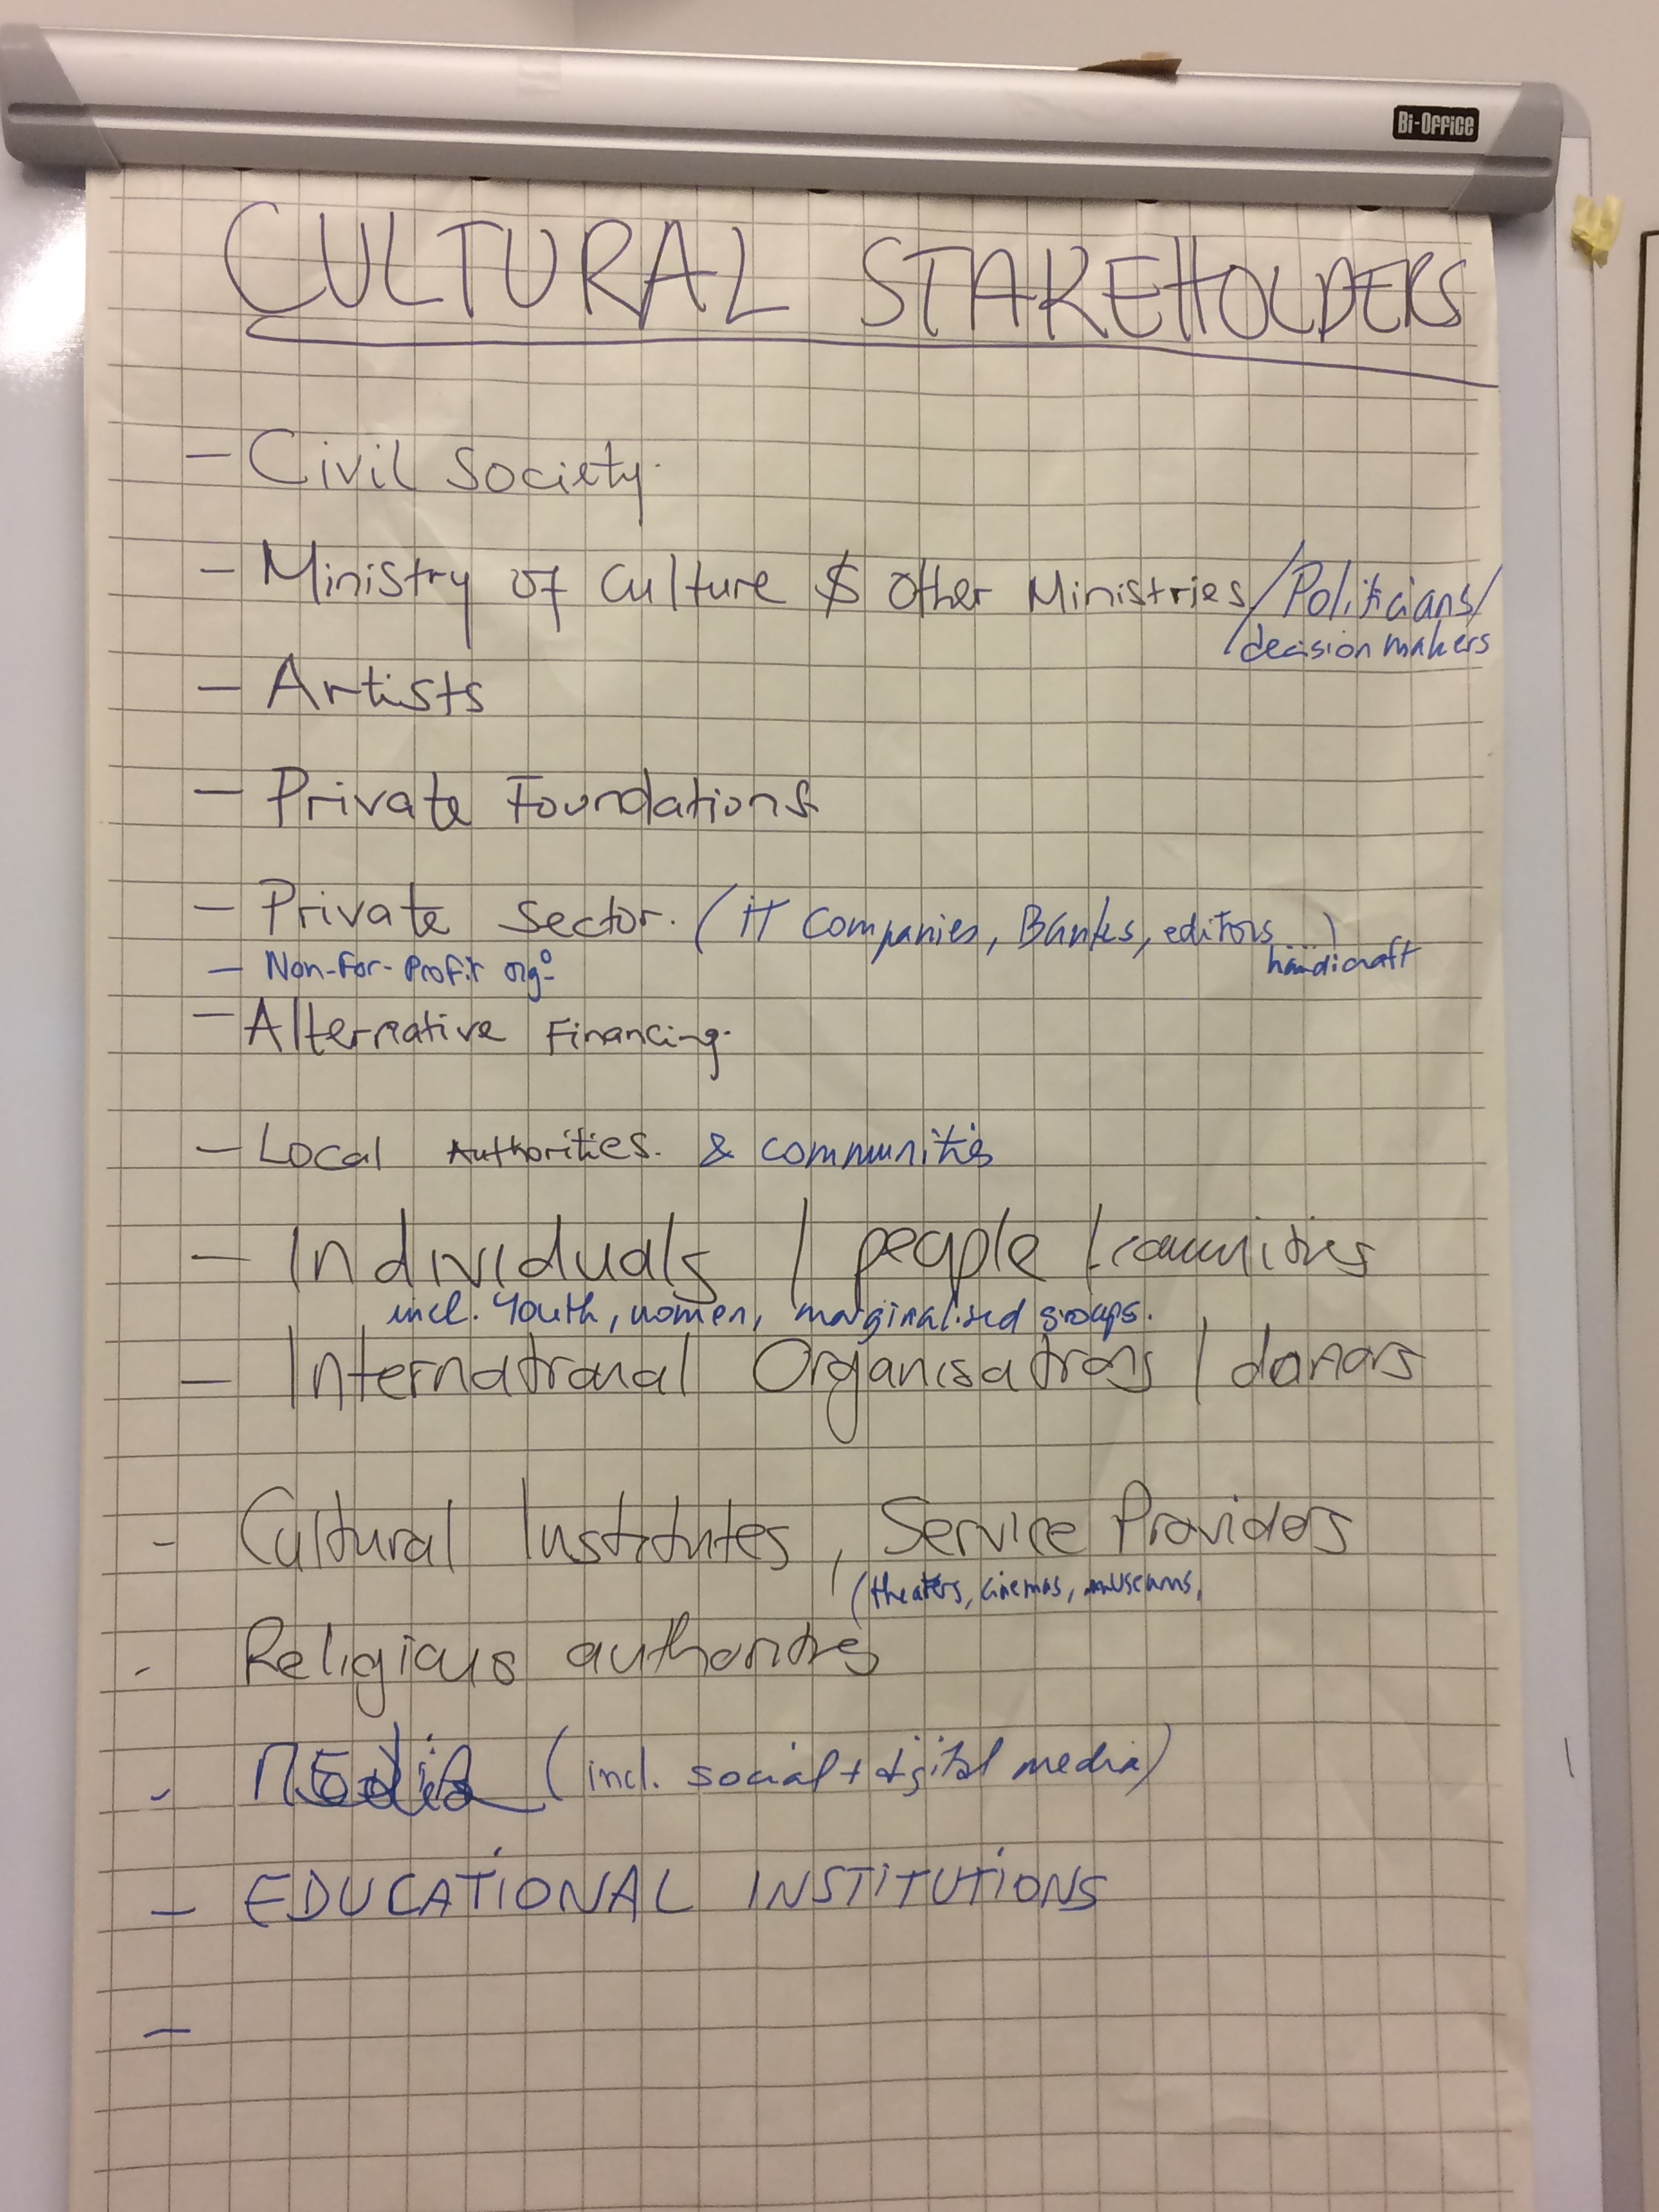 Bi-Office
CULTURAL STAKEHOLDERS
- Civil Society.
- Ministry of Culture $ Other Ministries/Politicians/
/decision makers
- Artists
- Private Foundations
- Private Sector. (IT Companies, Banks, editors ...)
handicraft
- Non-For-Profit org°
- Alternative Financing.
- Local Authorities. & communities
- Individuals / people / communities
incl. Youth, women, marginalised groups.
- International Organisations / donors
- Cultural Institutes, Service Providers
(theaters, cinemas, museums,
- Religious authorities
- Media (incl. social + digital media)
- EDUCATIONAL INSTITUTIONS
-